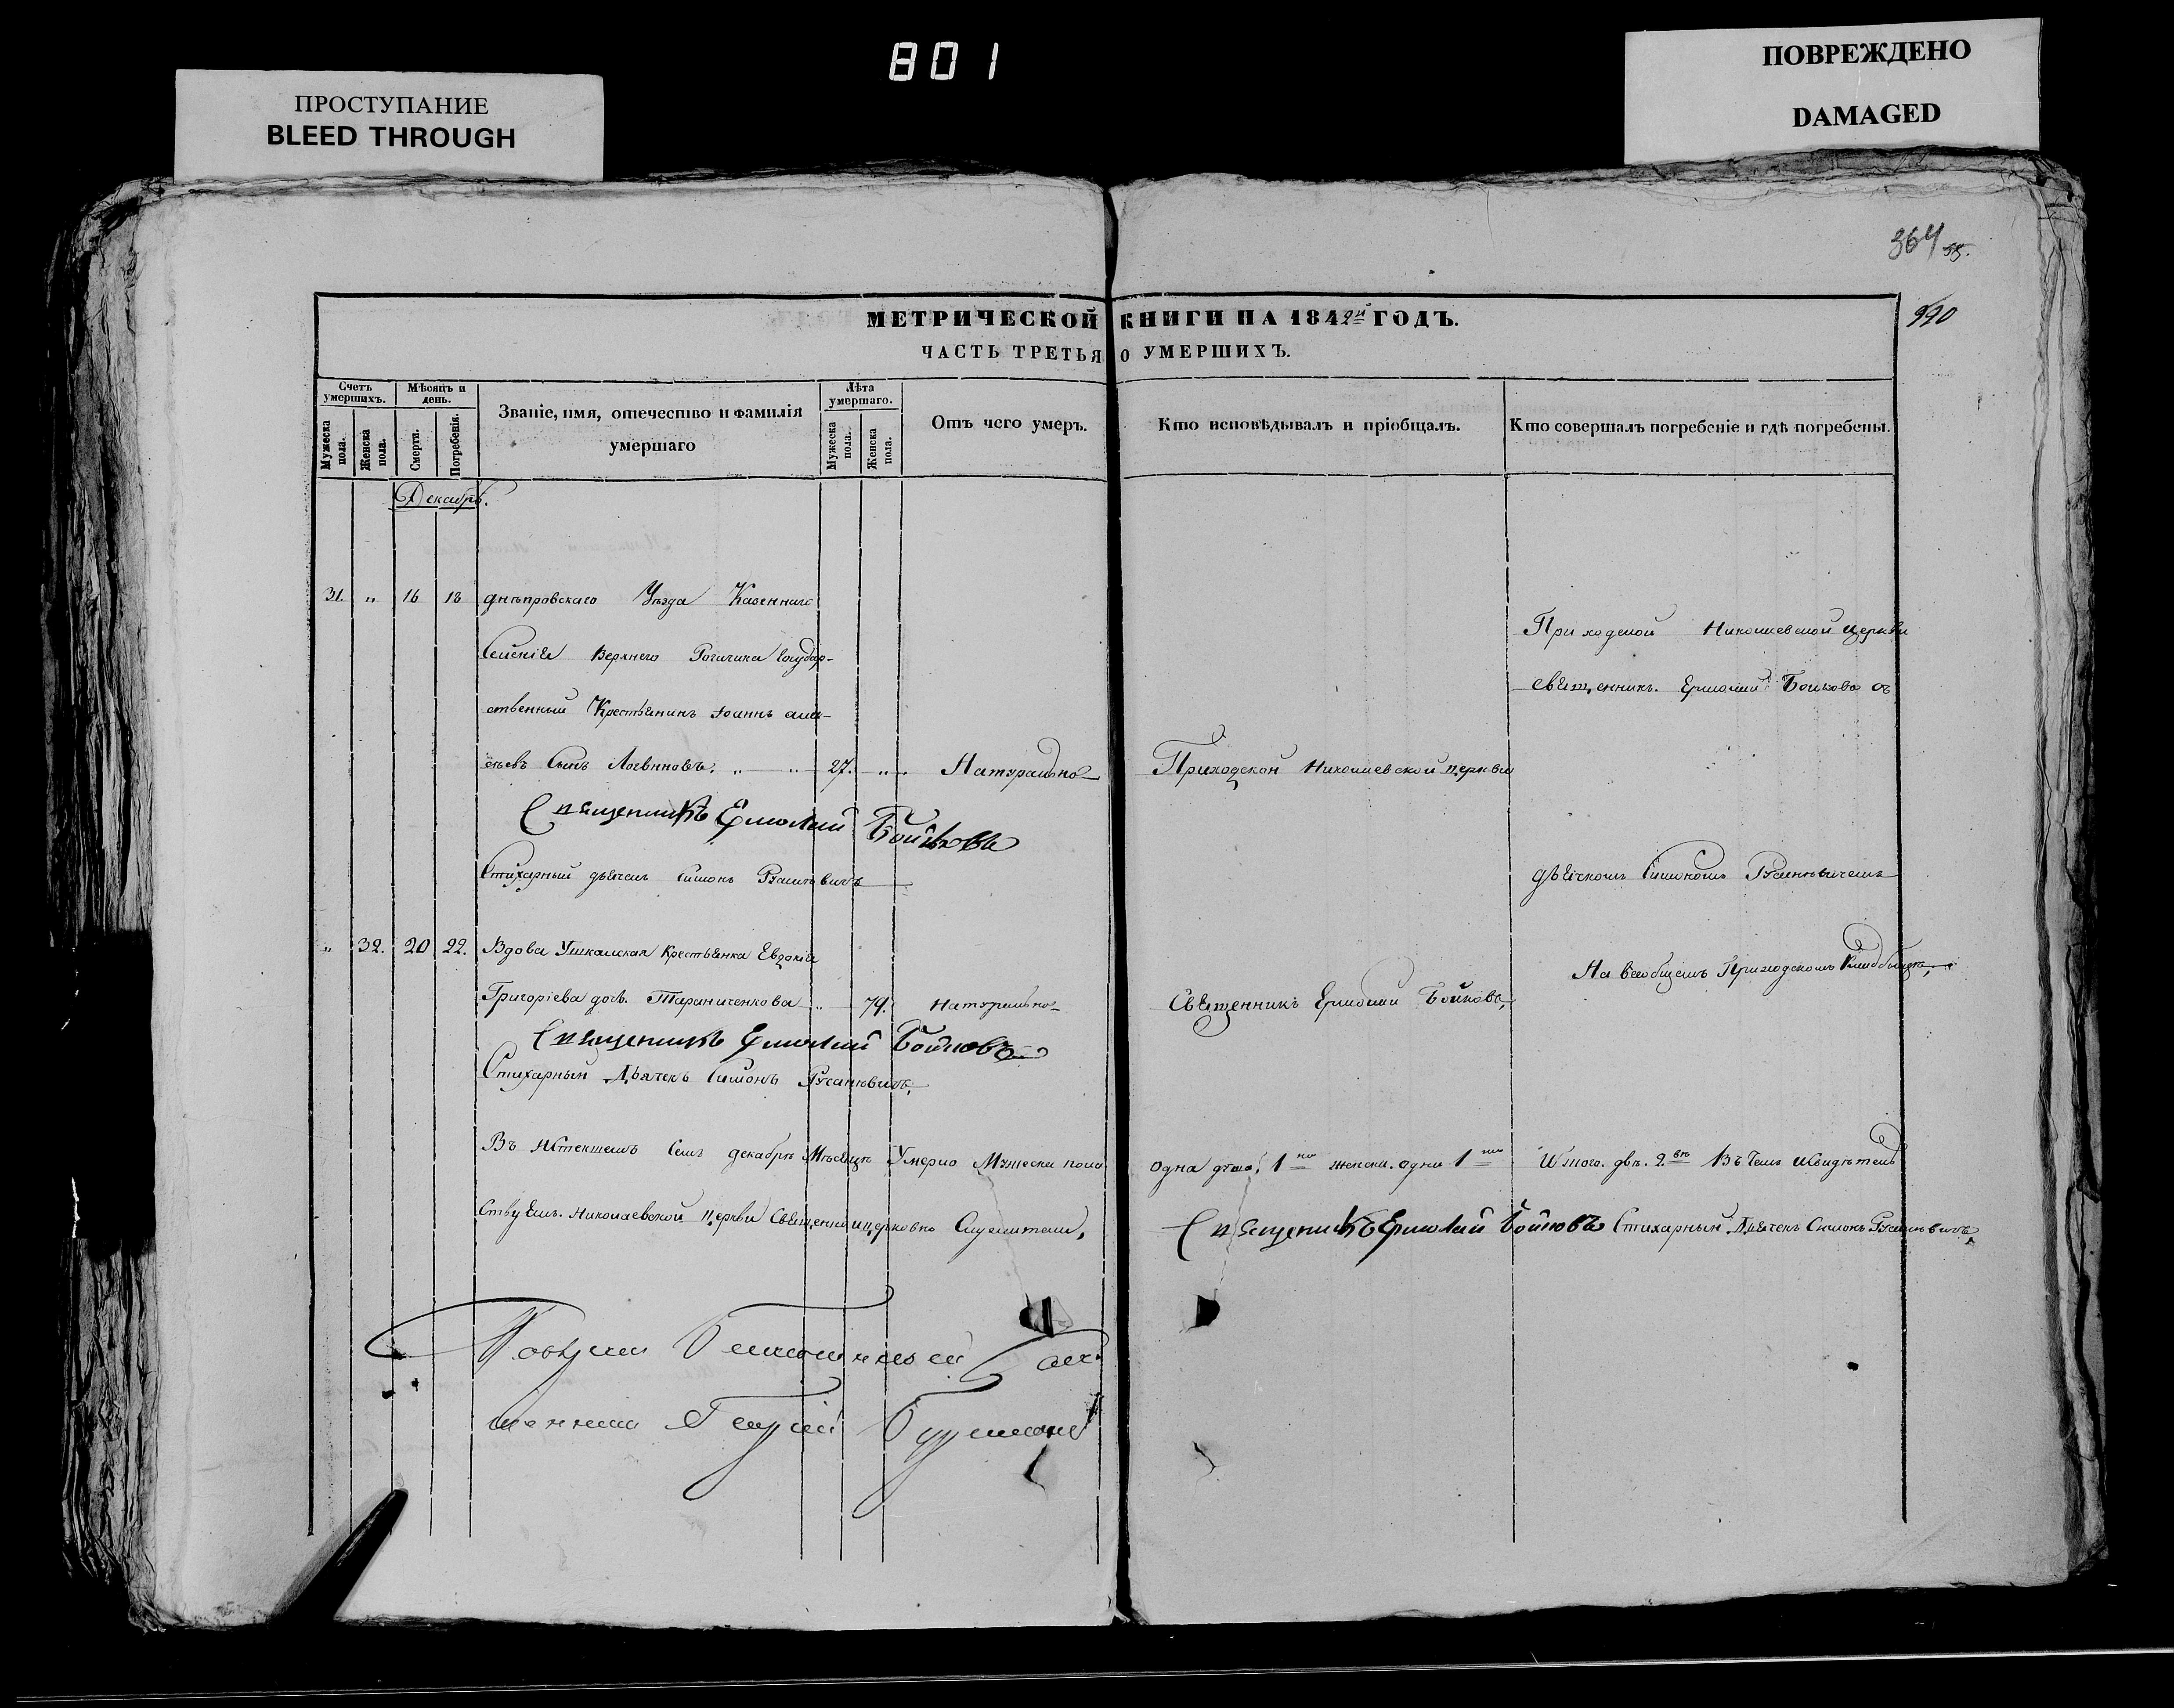 801
ПРОСТУПАНИЕ
BLEED THROUGH
ПОВРЕЖДЕНО
DAMAGED
364
990
МЕТРИЧЕСКОЙ КНИГИ НА 1842й ГОДЪ.
ЧАСТЬ ТРЕТЬЯ О УМЕРШИХЪ.
Счетъ умершихъ.
Мужеска пола.
Женска пола.
Мѣсяцъ и день.
Смерти.
Погребенія.
Званіе, имя, отечество и фамилія умершаго
Лѣта умершаго.
Мужеска пола.
Женска пола.
Отъ чего умеръ.
Кто исповѣдывалъ и пріобщалъ.
Кто совершалъ погребеніе и гдѣ погребены.
Декабрь.
31. " 16 18 Днѣпровскаго Уѣзда Казеннаго
Селенія Верхнего Рогачика Государ-
ственный Крестьянинъ Іоаннъ
сынъ Логвиновъ. " " 27. " Натурально
Приходской Николаевской церкви
Приходской Николаевской церкви
священникъ Ермолай Бойковъ съ
Священникъ Ермолай Бойковъ
Стихарный дьячекъ Симонъ
дьячкомъ Симономъ
" 32. 20 22. Вдова Крестьянка Евдокія
Григоріева дочь Тараниченкова " 79. Натурально
Священникъ Ермолай Бойковъ,
На всеобщемъ Приходскомъ Кладбищѣ,
Священникъ Ермолай Бойковъ
Стихарный Дьячекъ Симонъ
Въ истекшемъ семъ декабрѣ Мѣсяцѣ Умерло Мужеска пола одна душа, 1 женска. одна 1 Итого. двѣ. 2. Въ чемъ и свидѣтель
ствуемъ. Николаевской церкви Священно и церковно Служители,
Священникъ Ермолай Бойковъ Стихарный Дьячекъ Симонъ